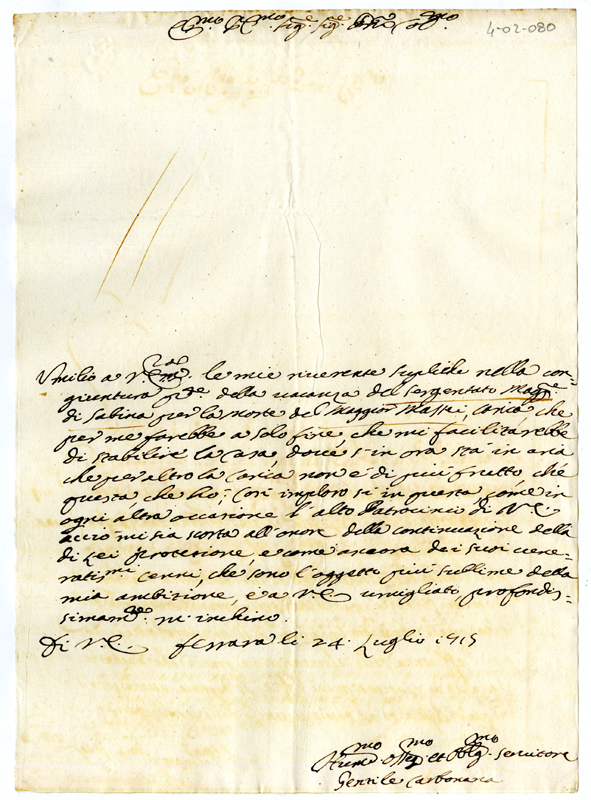 4-02-080
Emo. Rmo. Sige. Sige. Pne. Colmo.
Umilio a V. Emza le mie riverente supliche nella con-
giuntura pnte. della vacanza del sergentato Magre
di Sabina per la morte del Maggior Massei, carica che
per me sarebbe a solo fine, che mi facilitarebbe
di stabilire la casa dove sin ora sta in aria
che per altro la carica non è di più frutto, che
questa che ho; così imploro sì in questa, come in
ogni altra occasione l'alto Patrocinio di V.E.
acciò mi sia scorta all'onore della continuazione della
di Lei protetione, e come ancora dei suoi vene-
ratismi. cenni, che sono l'oggetto più sublime della
mia ambizione, e a V.E. umigliato, profondis-
simamte. m'inchino.
Di V.E. Ferrara li 24. Luglio 1715
Humo. Ossqmo. et Oblgmo. Servitore
Gentile Carbonara